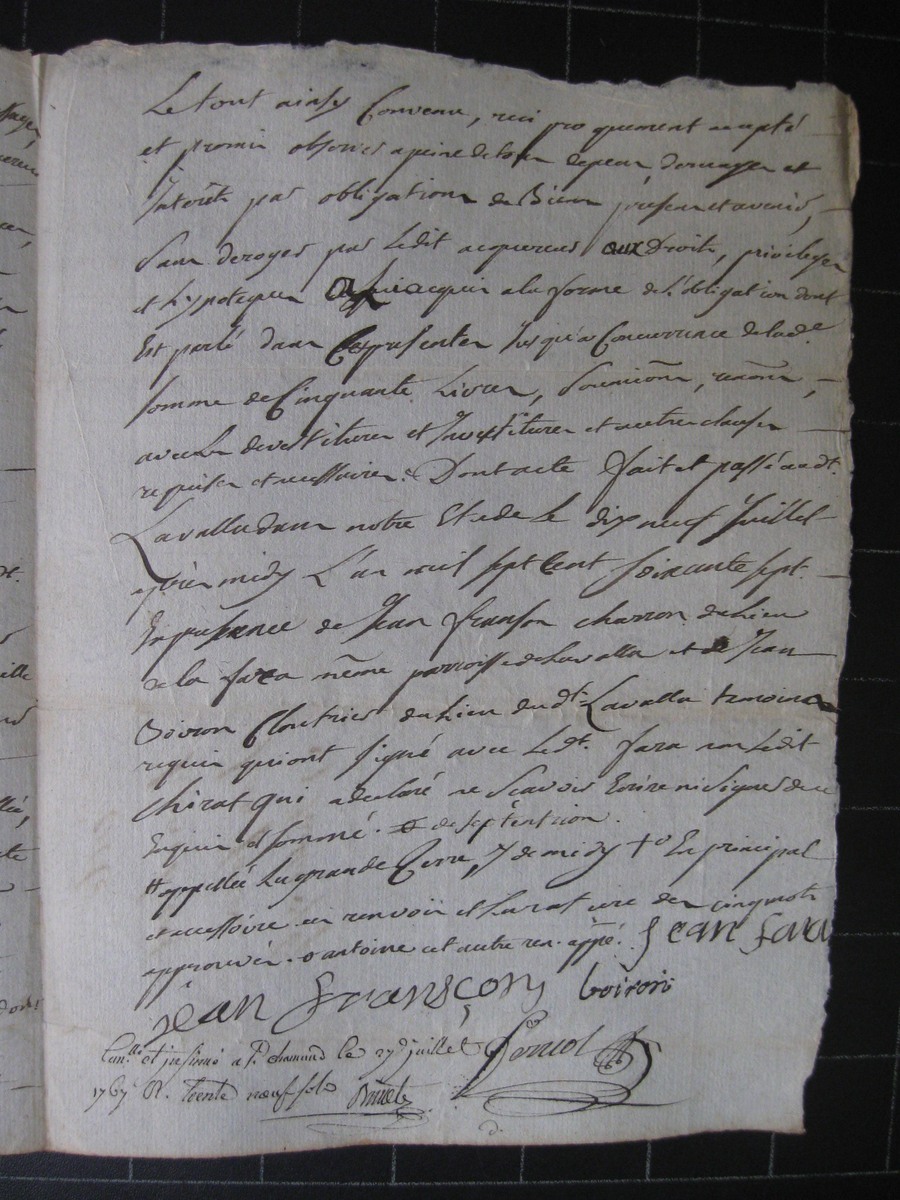 Le tout ainsy Convenu, reciproquement accepté
et promis observer a peine de tous depens, domages et
Interêts par obligations de Biens presens et avenir,
Sans deroger par Ledit acquereur aux Droits, privileges
et hypoteques acquis a la forme de L'obligation dont
Est parlé dans Ces presentes Jusqu'a Concurrance de lade
somme de Cinquante Livres, Soumiōns, renōns,
avec Les devestitures et Investitures et autres clauses
requises et necessaires. Dont acte fait et passé audt.
Lavalla dans notre Etude Le dix neuf Juillet
après midy L'an mil sept Cent soixante sept
En presence de Jean franson charron du Lieu
de la fara même parroisse de Lavalla et de Jean
Boiron Cloutrier du Lieu dudt. Lavalla temoins
requis qui ont signé avec Ledt. fara non Ledit
Chirat qui a declaré ne Scavoir Ecrire ni signer de ce
Enquis et sommé. de septentrion.
appellée La grande Terre, 7 de midy to En principal
et accessoire en renvoii et la rature des cinq mots
approuvés. o antoine cet autre ren. appé. jean fara
jean franşcon boiron
et insinué a St. chamond le 27e juillet
1767 R. trente neuf sols